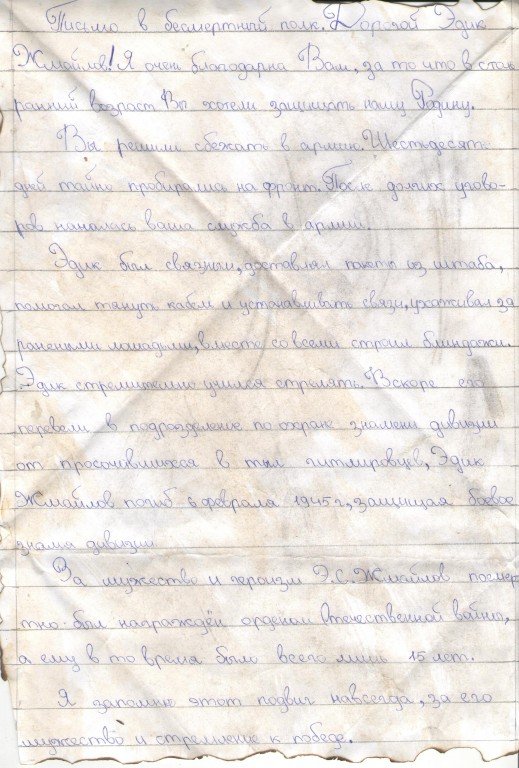 Письмо в бесмертный полк. Дорогой Эдик
Жмайлов! Я очень благодарна Вам, за то что в столь
ранний возраст Вы хотели защищать нашу Родину.
Вы решили сбежать в армию. Шестьдесять
дней тайно пробирались на фронт. После долгих угово-
ров началась ваша служба в армии.
Эдик был связным, доставлял пакеты из штаба,
помогал тянуть кабель и устанавливать связь, ухаживал за
ранеными лошадьми, вместе со всеми строил блиндажи.
Эдик стремительно учился стрелять. Вскоре его
перевели в подразделение по охране знамени дивизии
от просочившихся в тыл гитлировцев, Эдик
Жмайлов погиб 6 февраля 1945 г, защищая боевое
знамя дивизии.
За мужество и героизм Э.С. Жмайлов посмер
тно был награждён орденом Отечественной войны,
а ему в то время было всего лишь 15 лет.
Я запомню этот подвиг навсегда, за его
мужество и стремление к победе.